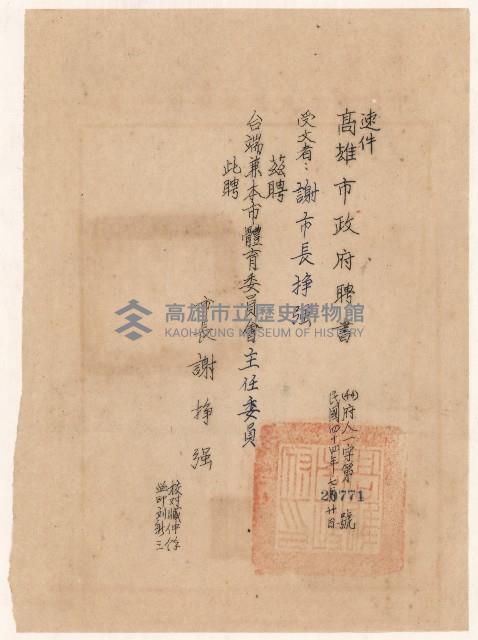 速件
高雄市政府聘書
(44)府人一字第20771號
民國四十四年七月廿日
受文者：謝市長掙强
茲聘
台端兼本市體育委員會主任委員
此聘
市長謝掙强
高雄市立歷史博物館
KAOHSIUNG MUSEUM OF HISTORY